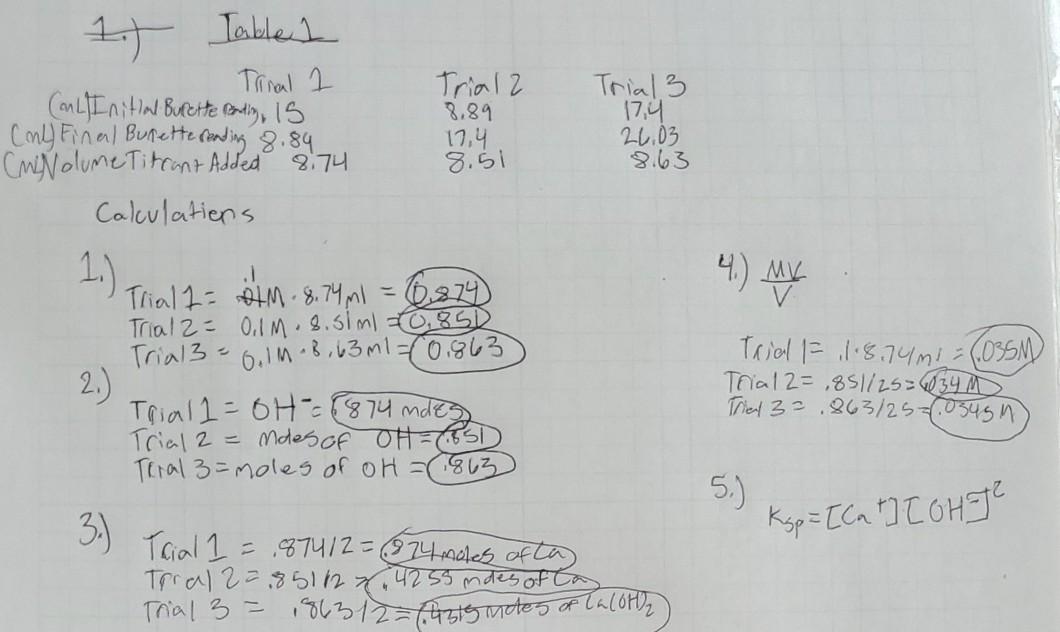 1.) Table 1
Trial 1 Trial 2 Trial 3
(mL) Initial Burette Reading .15 8.89 17.4
(mL) Final Burette reading 8.89 17.4 26.03
(mL) Volume Titrant Added 8.74 8.51 8.63
Calculations
1.)
Trial 1 = .1M · 8.74ml = 0.874
Trial 2 = 0.1M · 8.51ml = 0.851
Trial 3 = 0.1M · 8.63ml = 0.863
2.)
Trial 1 = OH⁻ = .874 moles
Trial 2 = moles of OH = .851
Trial 3 = moles of OH = .863
3.)
Trial 1 = .874/2 = .874 moles of Ca
Trial 2 = .851/2 = .4255 moles of Ca
Trial 3 = .863/2 = .4315 moles of Ca(OH)₂
4.) MV/V
Trial 1 = .1·8.74ml = .035M
Trial 2 = .851/25 = .034M
Trial 3 = .863/25 = .0345M
5.)
Ksp = [Ca⁺][OH⁻]²